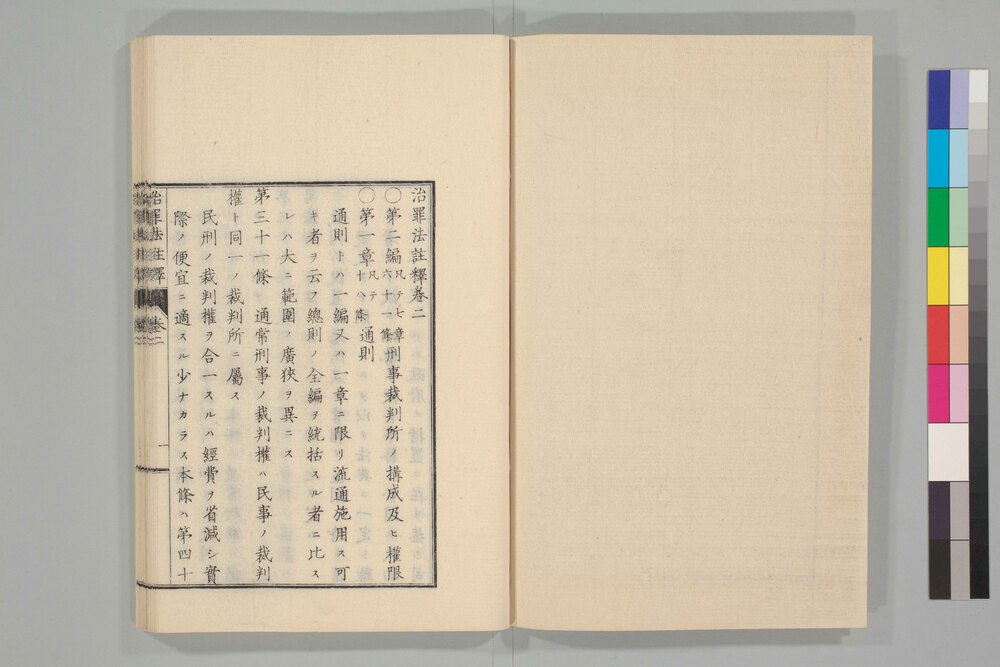 治罪法註釋卷二
〇第二編凡テ七章六十一條刑事裁判所ノ搆成及ヒ權限
〇第一章凡テ十八條通則
通則トハ一編又ハ一章ニ限リ流通施用ス可
キ者ヲ云フ總則ノ全編ヲ統括スル者ニ比ス
レハ大ニ範圍ノ廣狹ヲ異ニス
第三十一條 通常刑事ノ裁判權ハ民事ノ裁判
權ト同一ノ裁判所ニ屬ス
民刑ノ裁判權ヲ合一スルハ經費ヲ省減シ實
際ノ便宜ニ適スル少ナカラス本條ハ第四十
治罪法註釋 卷二 一